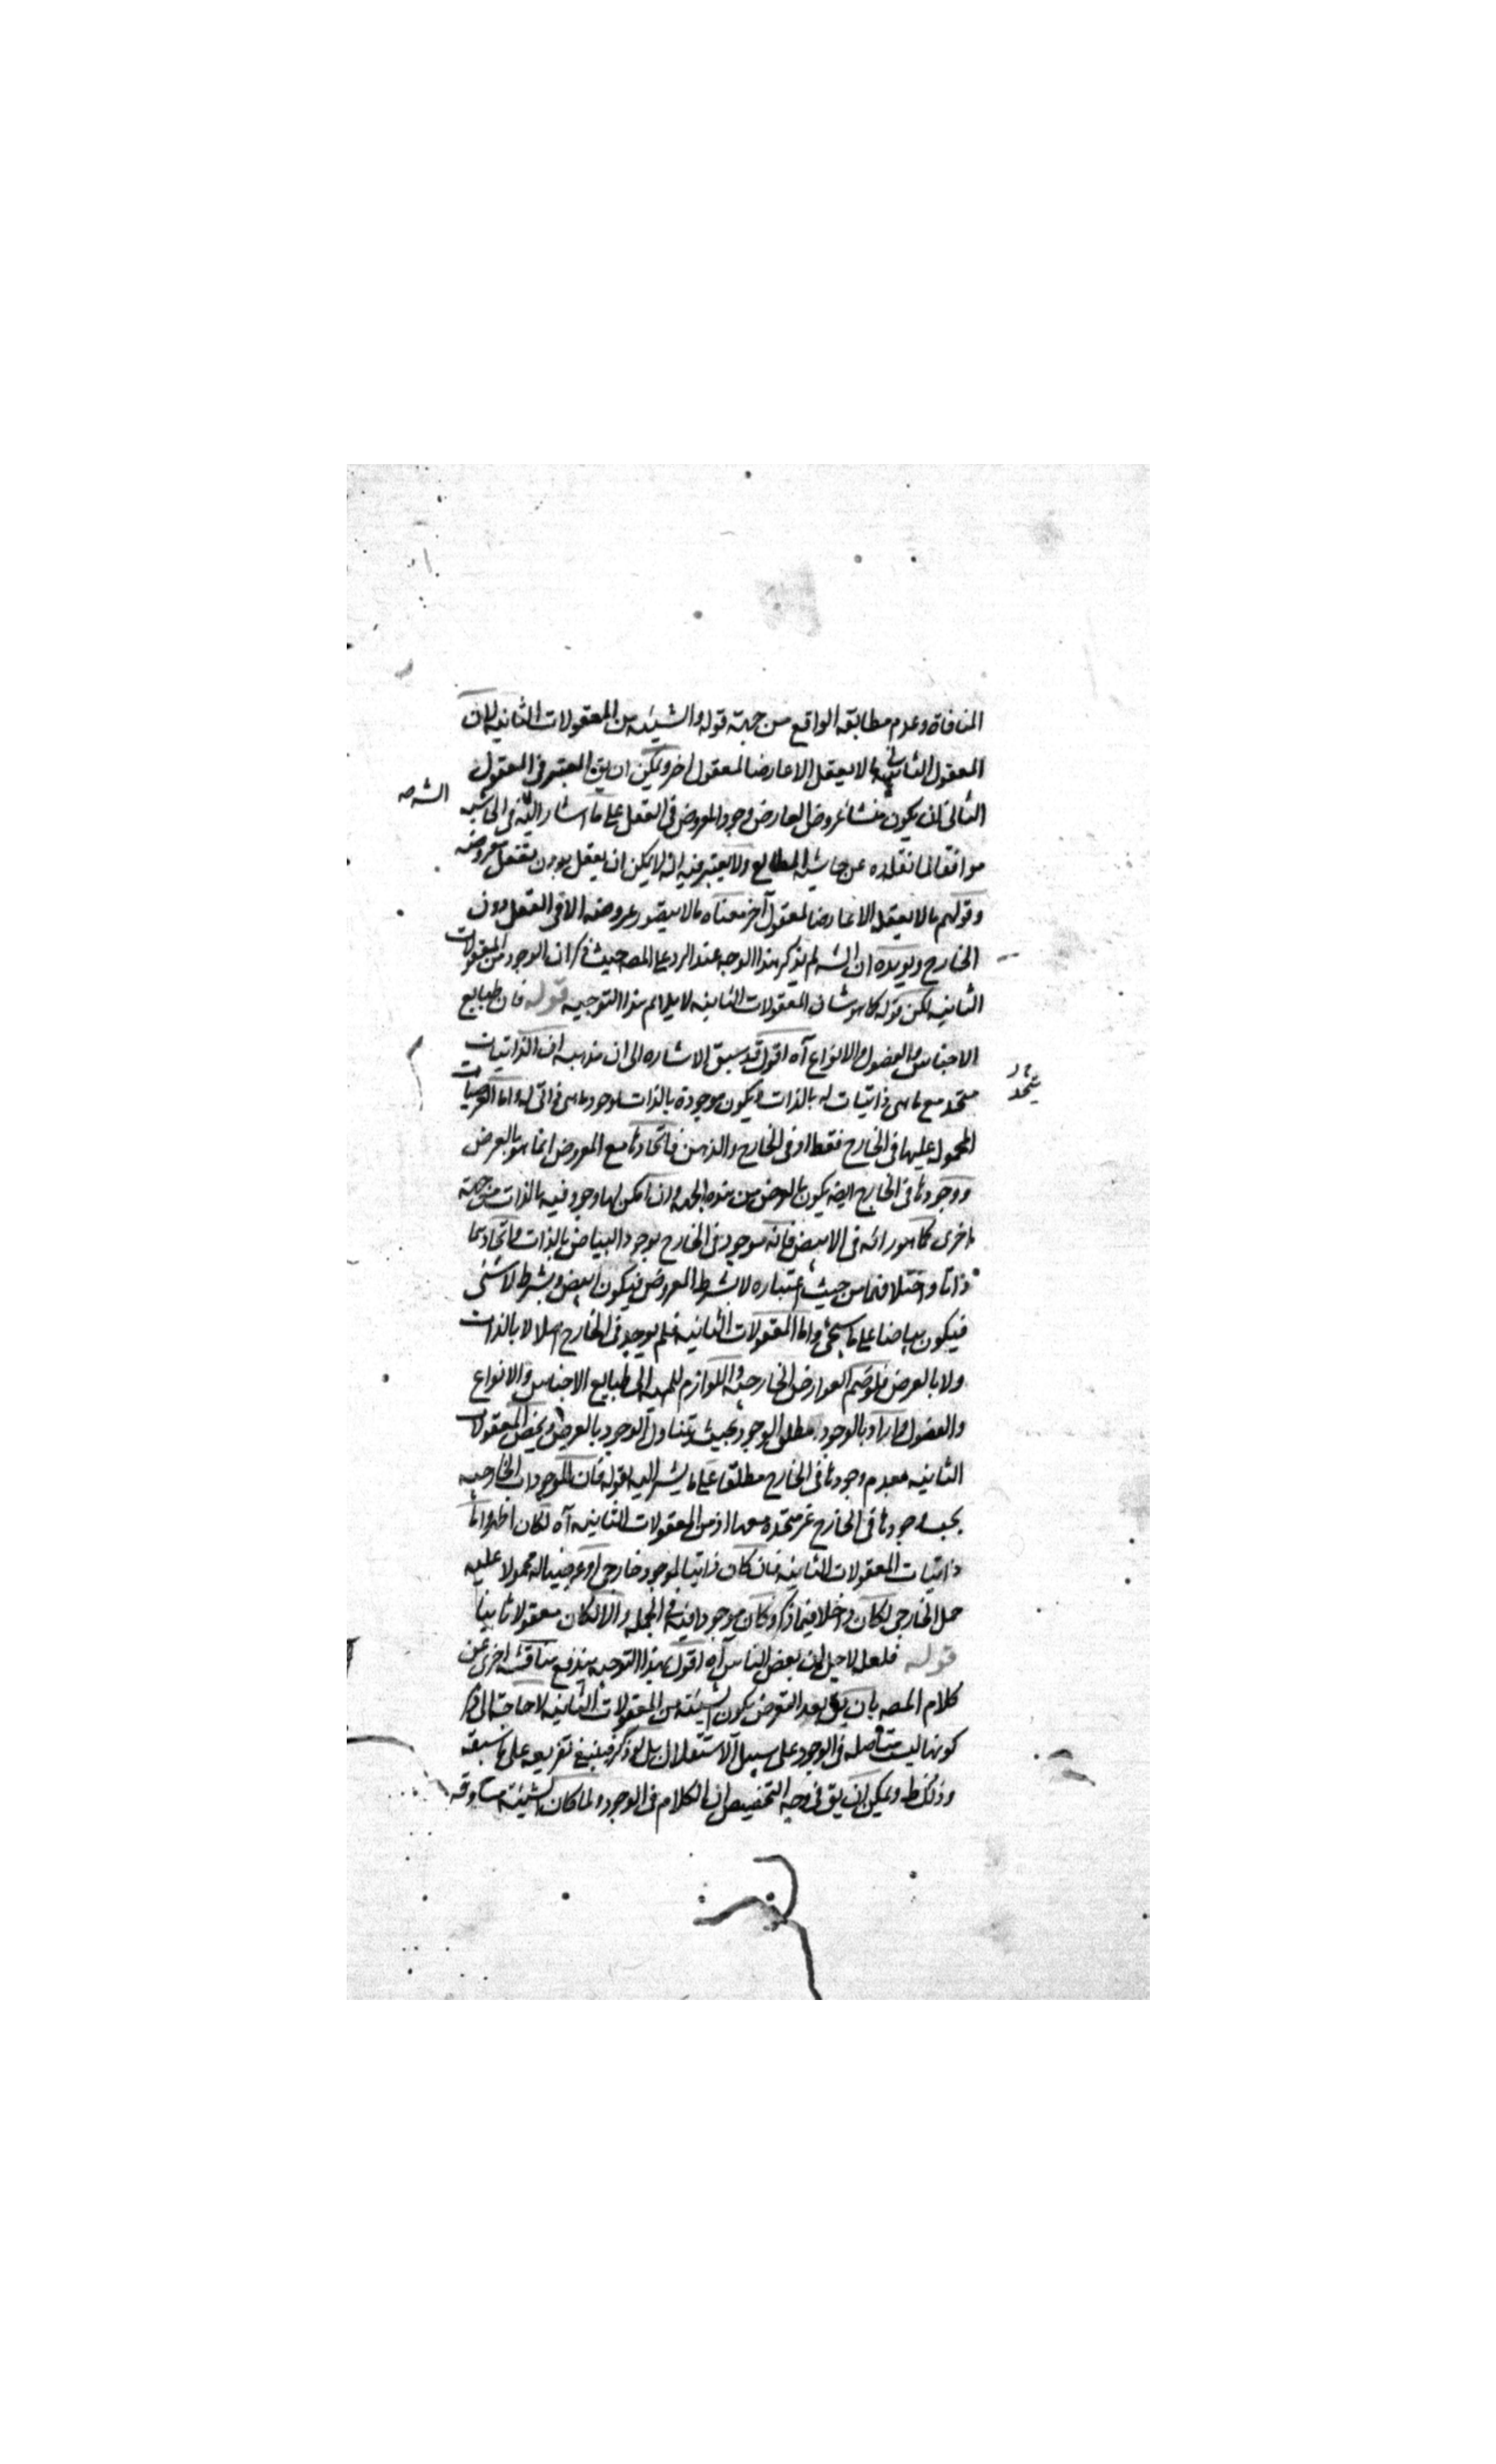 المنافاة وعدم مطابقة الواقع من جهة قوله والشيئية من المعقولات الثانية لان
المعقول الثاني ما لا يعقل الا عارضا لمعقول اخر ويمكن ان يق المعتبر في المعقول
الثاني ان يكون منشأ عروض العارض وجود المعروض في العقل على ما اشار اليه في الحاشية
الشه صه
موافقا لما نقلناه عن حاشية المطالع ولا يعتبر فيه انه لا يمكن ان يعقل بدون تعقل معروضه
وقولهم ما لا يعقل الا عارضا لمعقول آخر معناه ما لا يتصور عروضه الا في العقل دون
الخارج ويؤيده ان الشه لم يذكر هذا الوجه عند الرد على المصه حيث ذكر ان الوجود من المعقولات
الثانية لكن قوله كما هو شان المعقولات الثانية لا يلايم هذا التوجيه قوله فان طبايع
الاجناس والفصول والانواع آه اقول قد سبق الاشارة الى ان مذهبه ان الذاتيات
متحد مع ما هي ذاتيات له بالذات ويكون موجودة بالذات بوجود ما هي ذاتي له واما العرضيات
المحمولة عليها في الخارج فقط او في الخارج والذهن فاتحادها مع المعروض انما هو بالعرض
ووجودها في الخارج ايضه يكون بالعرض من هذه الجهة وان امكن لها وجود فيه بالذات من جهة
اخرى كما هو رائه في الابيض فانه موجود في الخارج بوجود البياض بالذات واتحادهما
ذاتا واختلافهما من حيث اعتباره لا بشرط المعروض فيكون ابيض وبشرط لا شئ
فيكون بياضا على ما سيجئ واما المعقولات الثانية فلم يوجد في الخارج اصلا لا بالذات
ولا بالعرض فلو ضم العوارض الخارجية واللوازم للمهية الى طبايع الاجناس والانواع
والفصول واراد بالوجود مطلق الوجود بحيث يتناول الوجود بالعرض ويخص المعقولات
الثانية بعدم وجودها في الخارج مطلقا على ما يشير اليه قوله فان الموجودات الخارجية
بحسب وجودها في الخارج غير متحدة معها اذ من المعقولات الثانية آه لكان اظهر واما
ذاتيات المعقولات الثانية فان كان ذاتيا لموجود خارجي او عرضيا له محمولا عليه
حمل الخارجي لكان داخلا فيما ذكر وكان موجودا فيه في الجملة والا لكان معقولا ثانيا
قوله فلعله لاجل ان بعض الناس آه اقول بهذا التوجيه يندفع مناقشة اخرى عن
كلام المصه بان يق بعد التعرض بكون الشيئية من المعقولات الثانية لا حاجة الى ذكر
كونها ليست متأصلة في الوجود على سبيل الاستقلال بل لو ذكر فينبغي تفريعه على ما سبقه
وذلك ظ ويمكن ان يق في وجه التخصيص ان الكلام في الوجود ولما كان الشيئية مساوقه